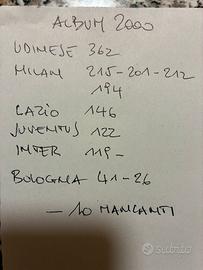 ALBUM 2000
UDINESE 362
MILAN 215-201-212
194
LAZIO 146
JUVENTUS 122
INTER 119-
BOLOGNA 41-26
- 10 MANCANTI
subito